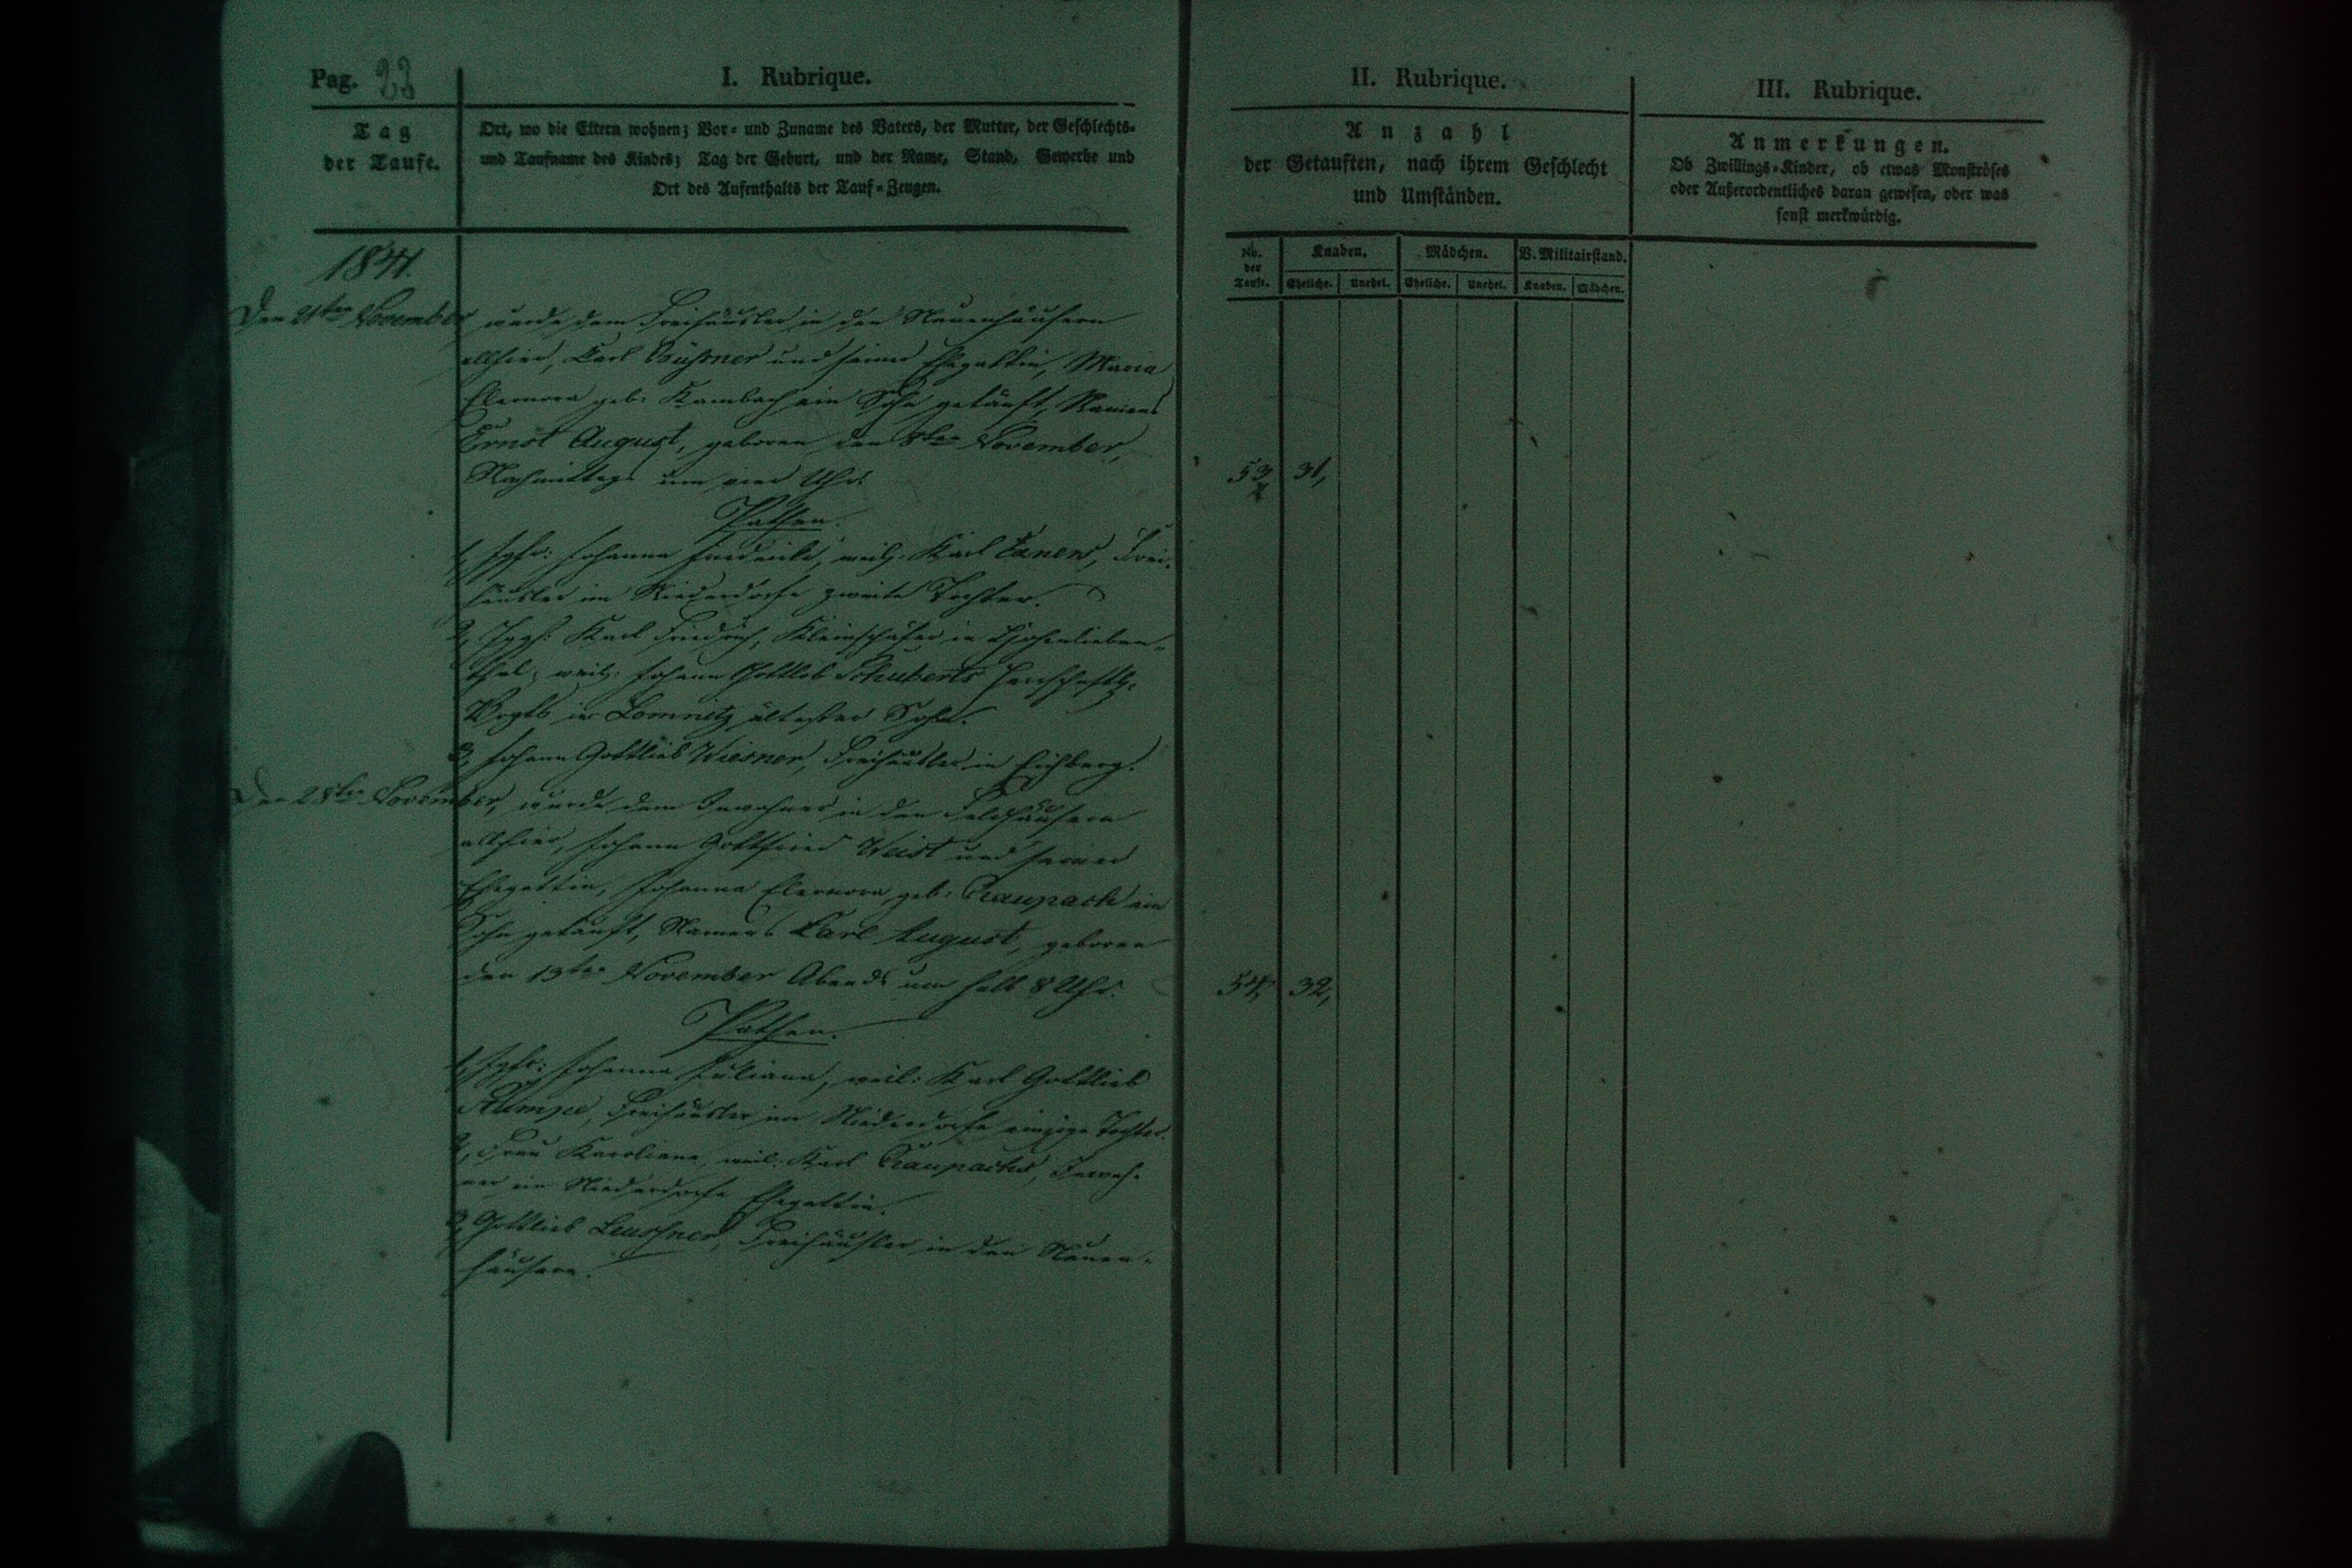 Pag. 22
I. Rubrique.
Tag
der Taufe.
Ort, wo die Eltern wohnen; Vor- und Zuname des Vaters, der Mutter, der Geschlechts-
und Taufname des Kindes; Tag der Geburt, und der Name, Stand, Gewerbe und
Ort des Aufenthalts der Tauf-Zeugen.
1841.
Den 21ten November wurde dem Freihäusler in den Neuenhäusern
allhier, Carl und seiner Ehegattin, Maria
Eleonora geb: Kambach ein Sohn getauft, Namens
Ernst August, geboren den 8ten November,
Nachmittags um vier Uhr.
Pathen.
1, Jgfr: Johanna Friedricke, weil: Karl Frei-
häusler im Niederdorfe zweite Tochter.
2, Jgs: Karl Friedrich, Kleinschäfer in Hohenlieben-
thal, weil: Johann Gottlob Schuberts herrschaftl:
Vogts in Lomnitz ältester Sohn.
3, Johann Gottlieb Wiesner, Freihäusler in Eichberg.
Den 28ten November, wurde dem Inwohner in den Feldhäusern
allhier, Johann Gottfried Weist und seiner
Ehegattin, Johanna Eleonora geb: Raupach ein
Sohn getauft, Namens Carl August, geboren
den 13ten November Abends um halb 8 Uhr.
Pathen.
1, Jgfr: Johanna Juliana, weil: Karl Gottlieb
Freihäusler im Niederdorfe einzige Tochter.
2, Frau Karoliana, weil: Karl Raupachs, Inwoh-
ner im Niederdorfe Ehegattin.
3, Gottlieb Leuschner, Freihäusler in den Neuen-
häusern.
II. Rubrique.
Anzahl
der Getauften, nach ihrem Geschlecht
und Umständen.
No. der Taufe.
Knaben.
Mädchen.
V. Militairstand.
Eheliche. Unehel. Eheliche. Unehel. Knaben. Mädchen.
53, 31,
54, 32,
III. Rubrique.
Anmerkungen.
Ob Zwillings-Kinder, ob etwas Monströses
oder Außerordentliches daran gewesen, oder was
sonst merkwürdig.